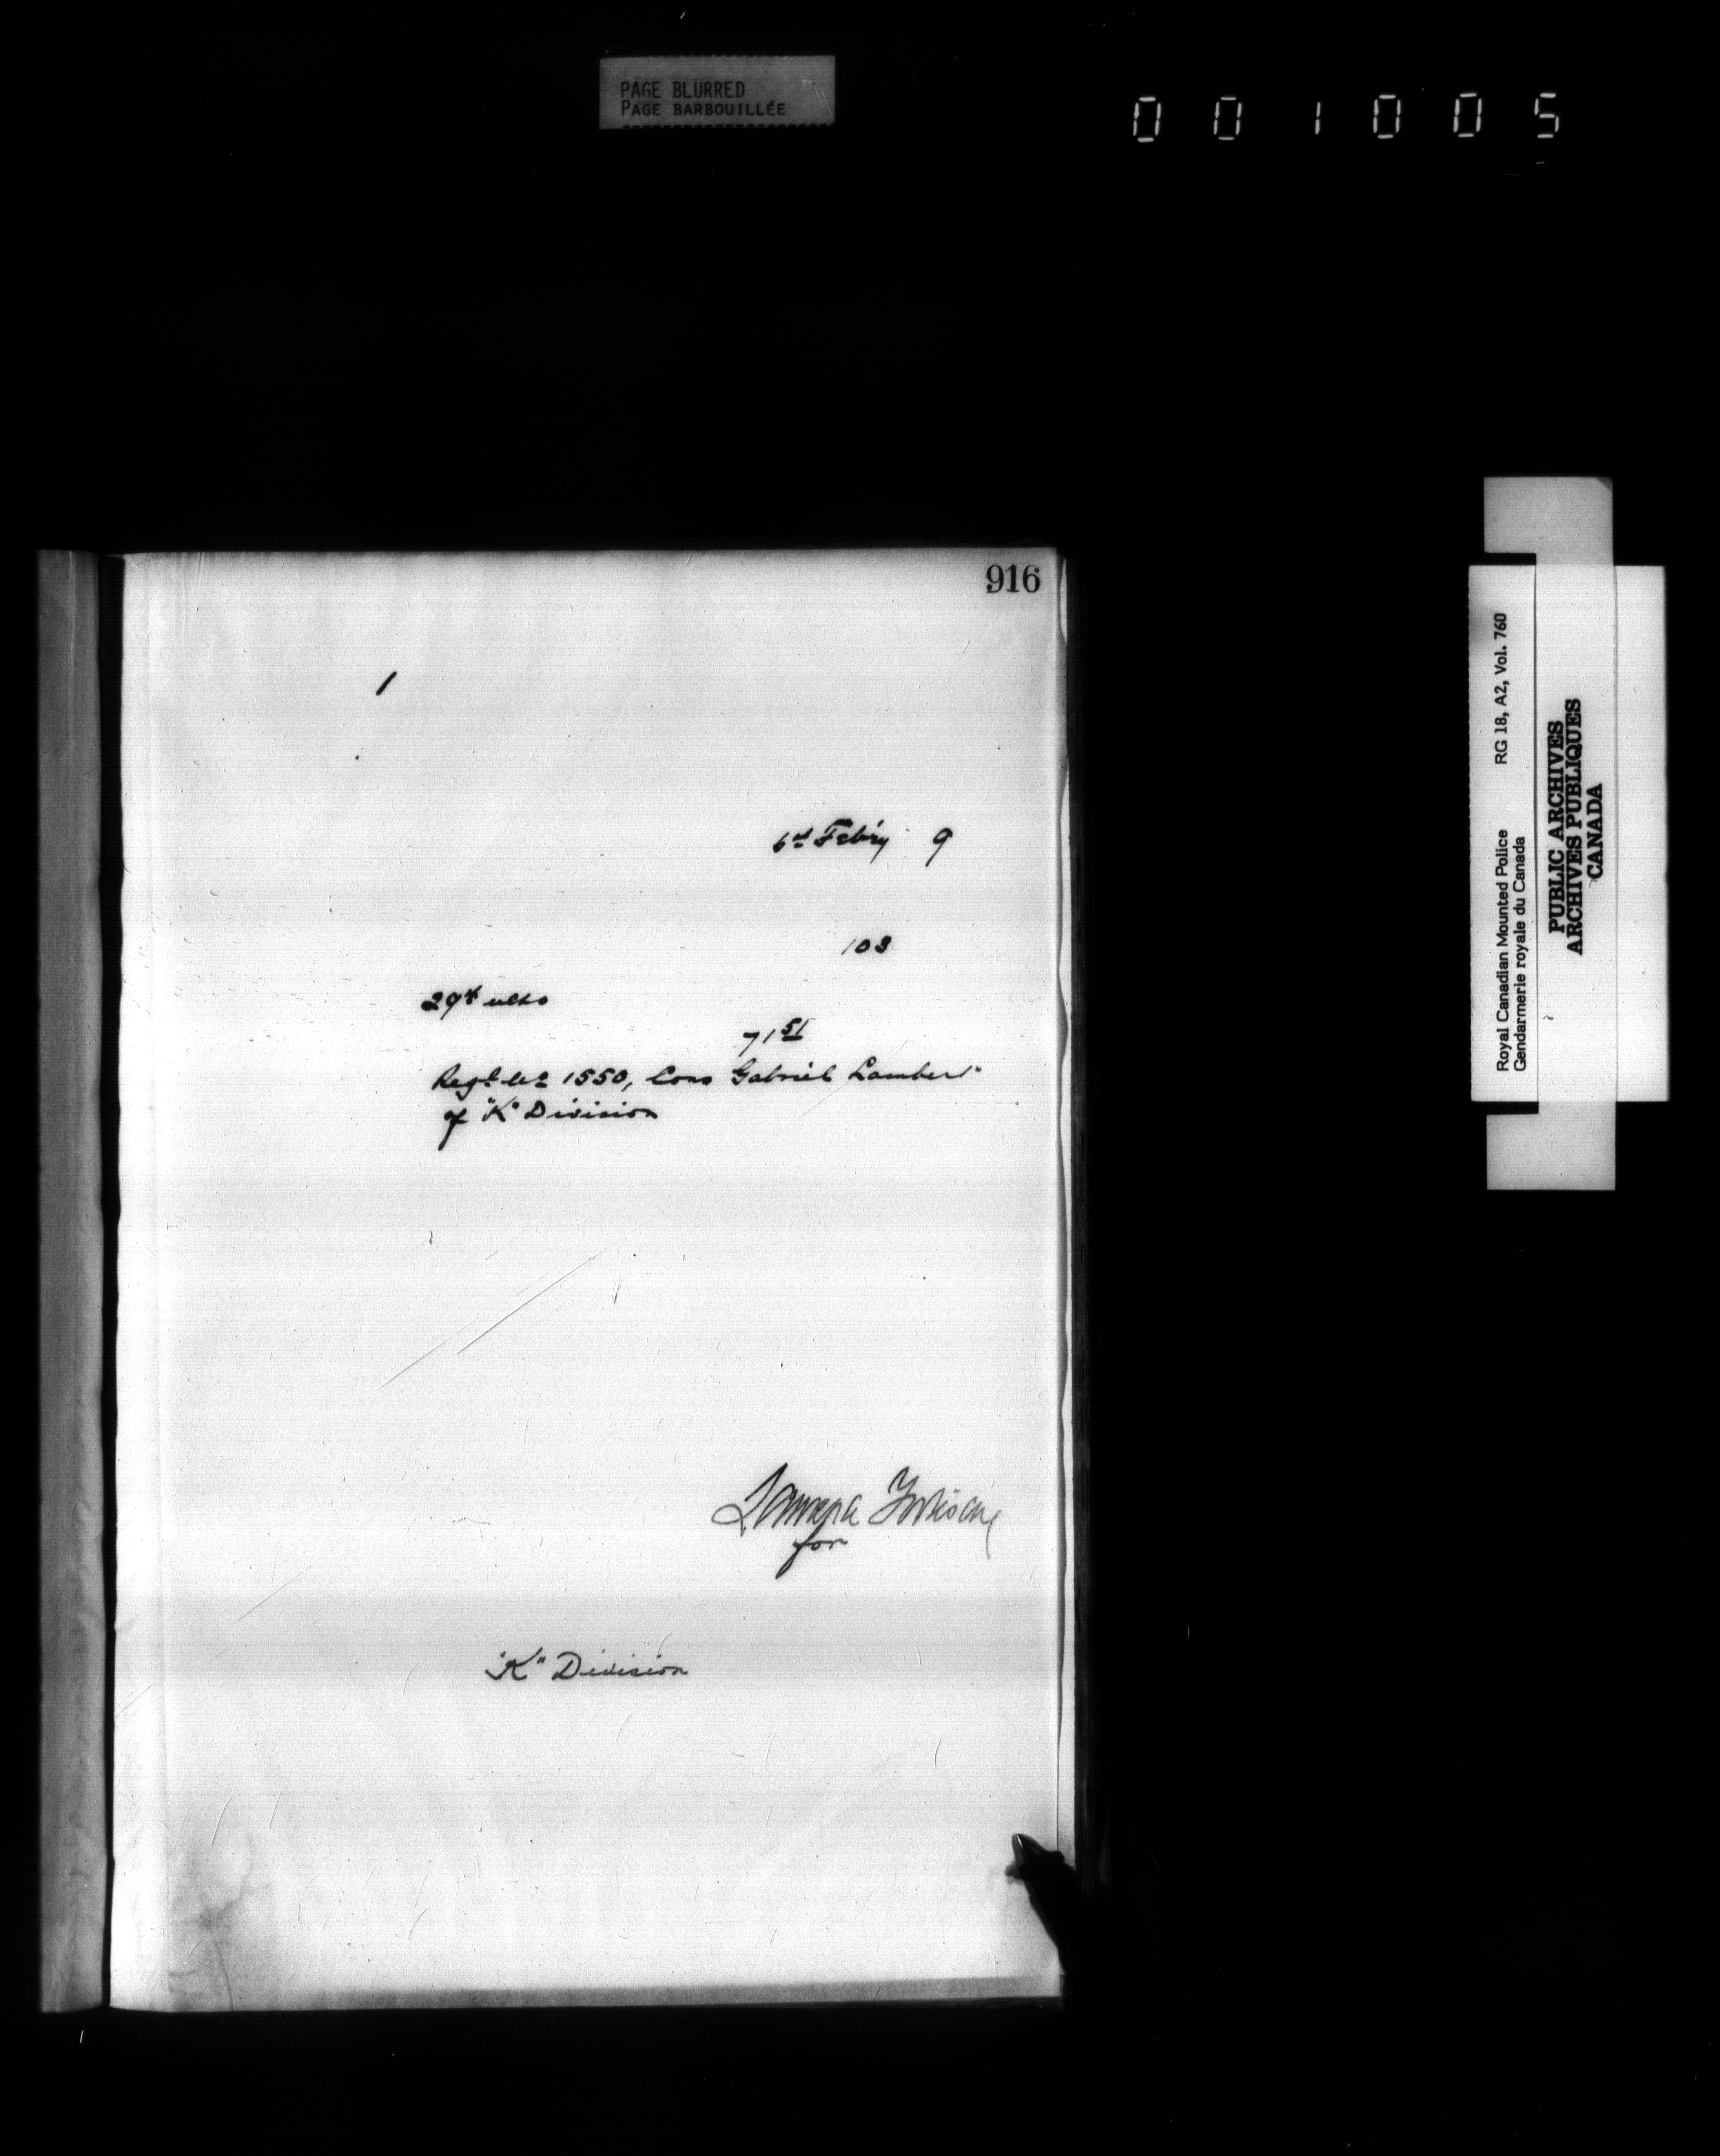 PAGE BLURRED
PAGE BARBOUILLÉE
001005
916
1
6th Febry 9
103
29th ulto
71st
Regtl No 1550, Cons Gabriel Lambert
of "K" Division
for
"K" Division
Royal Canadian Mounted Police RG 18, A2, Vol. 760
Gendarmerie royale du Canada
PUBLIC ARCHIVES
ARCHIVES PUBLIQUES
CANADA